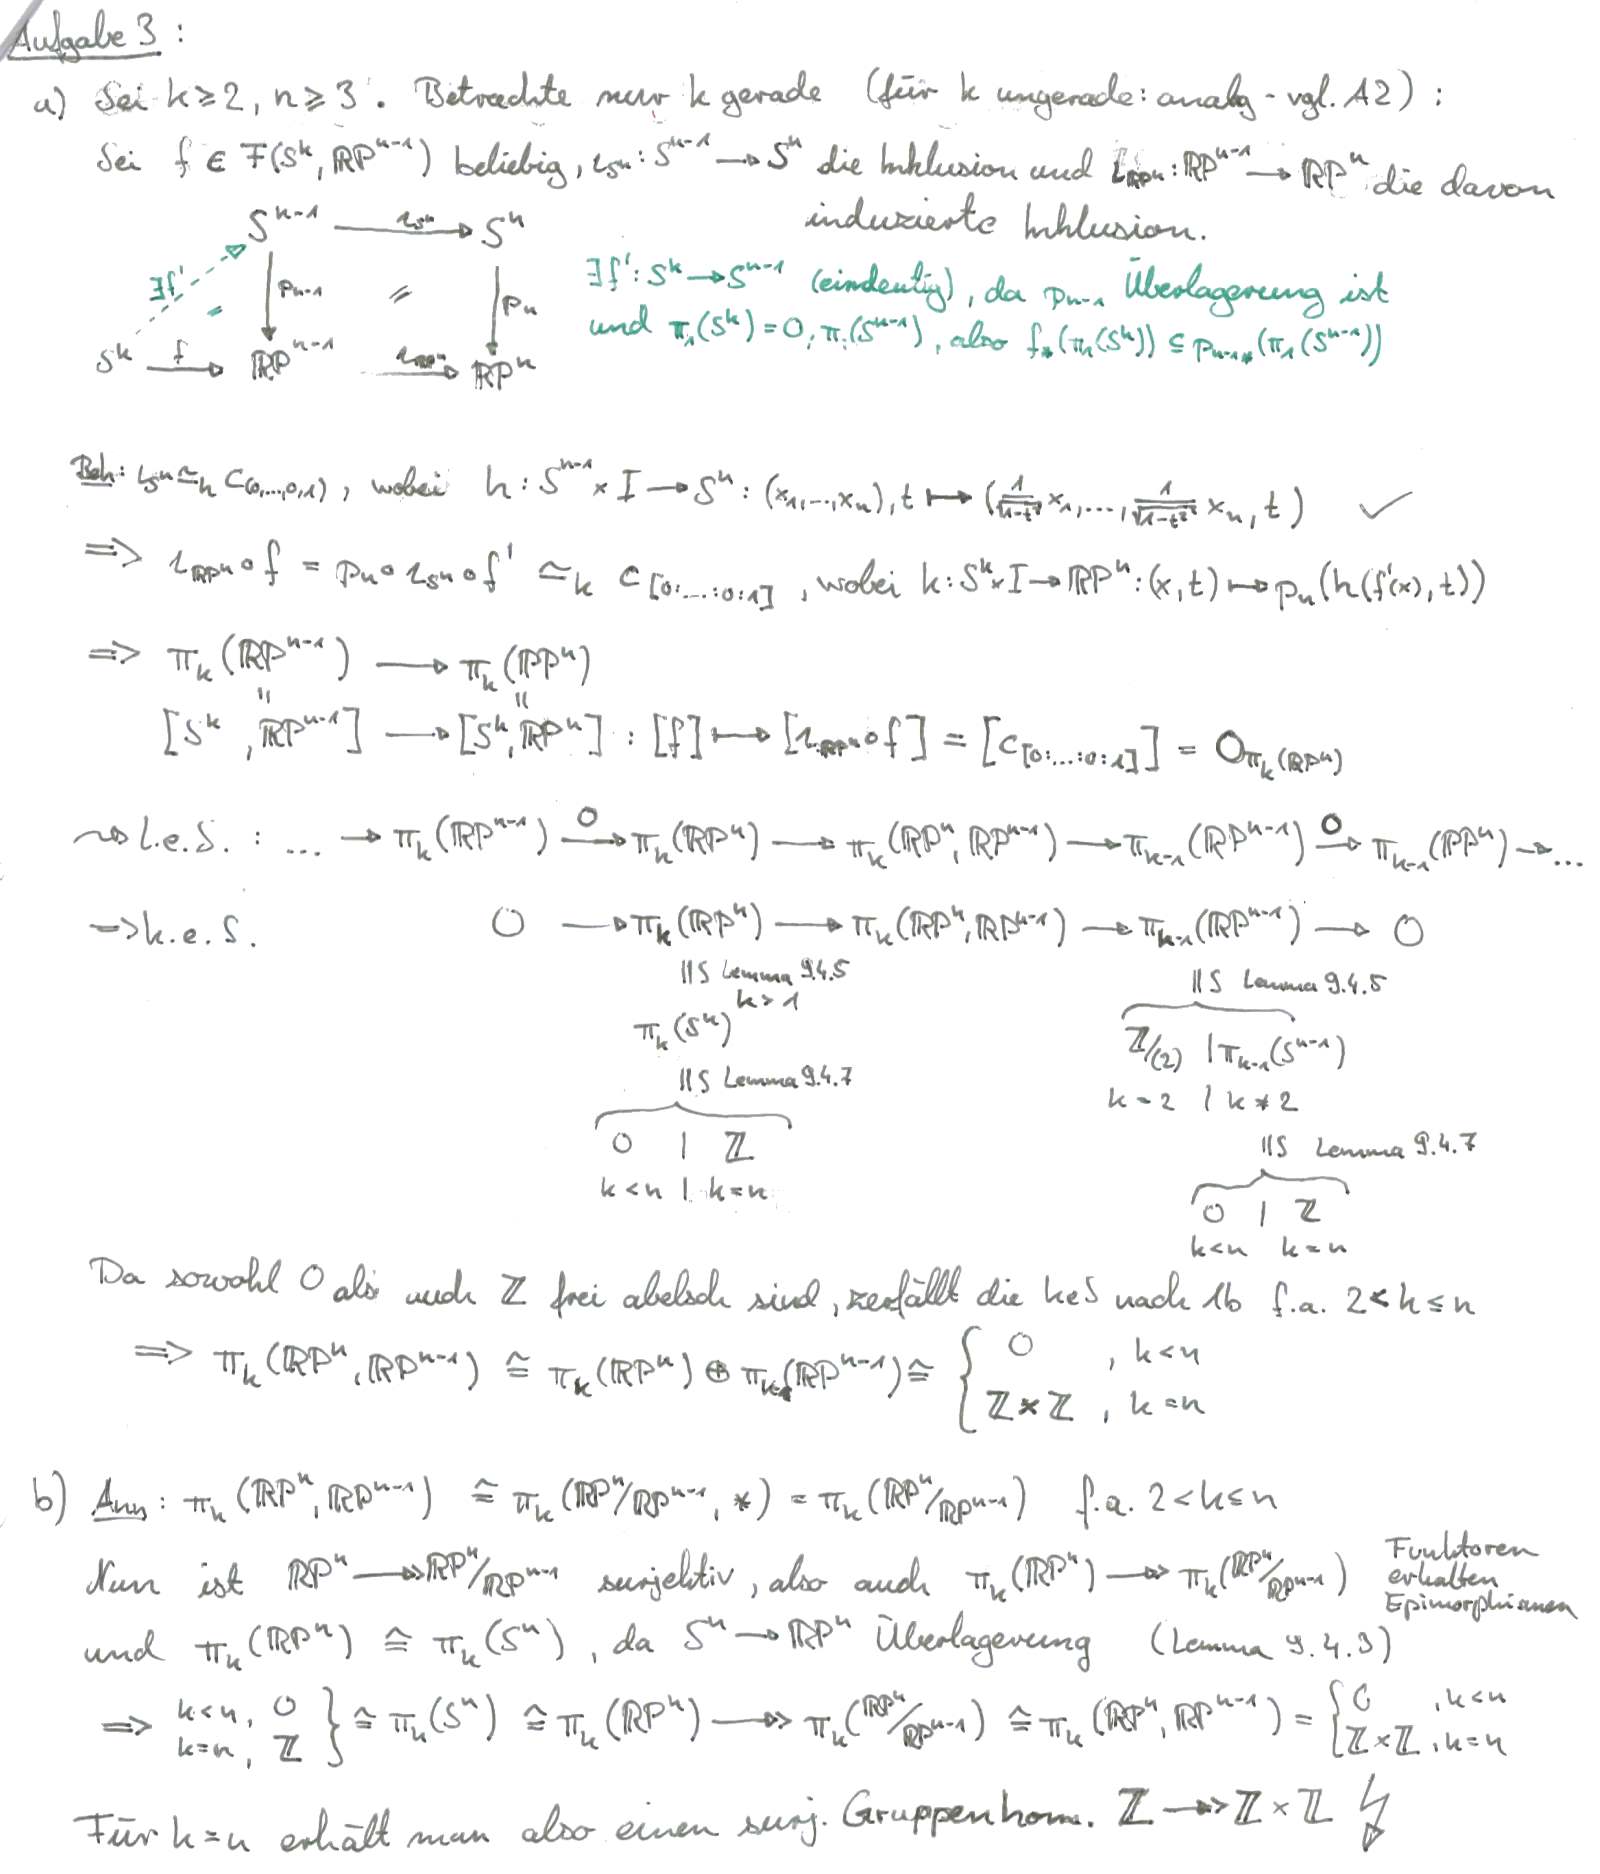 Aufgabe 3 :
a) Sei k ≥ 2, n ≥ 3 . Betrachte nur k gerade (für k ungerade: analog - vgl. A2) :
Sei f ∈ F(S^k, ℝP^{n-1}) beliebig, ι_{S^n} : S^{n-1} → S^n die Inklusion und ι_{ℝP^n} : ℝP^{n-1} → ℝP^n die davon
induzierte Inklusion.
S^{n-1} —ι_{S^n}→ S^n
∃f' = ↓ p_{n-1} = ↓ p_n
S^k —f→ ℝP^{n-1} —ι_{ℝP^n}→ ℝP^n
∃f' : S^k → S^{n-1} (eindeutig), da p_{n-1} Überlagerung ist
und π_1(S^k) = 0, π_1(S^{n-1}), also f_*(π_1(S^k)) ⊆ p_{n-1 *}(π_1(S^{n-1}))
Beh: ι_{S^n} ≃_h C_{(0,...,0,1)}, wobei h : S^{n-1} × I → S^n : (x_1,...,x_n), t ↦ (1/√(1-t²) x_1, ..., 1/√(1-t²) x_n, t) ✓
⇒ ι_{ℝP^n} ∘ f = p_n ∘ ι_{S^n} ∘ f' ≃_k C_{[0:...:0:1]}, wobei k : S^k × I → ℝP^n : (x, t) ↦ p_n(h(f'(x), t))
⇒ π_k(ℝP^{n-1}) → π_k(ℝP^n)
= =
[S^k, ℝP^{n-1}] → [S^k, ℝP^n] : [f] ↦ [ι_{ℝP^n} ∘ f] = [C_{[0:...:0:1]}] = 0_{π_k(ℝP^n)}
⇝ l.e.S. : ... → π_k(ℝP^{n-1}) —0→ π_k(ℝP^n) → π_k(ℝP^n, ℝP^{n-1}) → π_{k-1}(ℝP^{n-1}) —0→ π_{k-1}(ℝP^n) → ...
⇒ k.e.S. 0 → π_k(ℝP^n) → π_k(ℝP^n, ℝP^{n-1}) → π_{k-1}(ℝP^{n-1}) → 0
||S Lemma 9.4.5 ||S Lemma 9.4.5
k > 1
π_k(S^n) ℤ/(2) | π_{k-1}(S^{n-1})
||S Lemma 9.4.7 k = 2 | k ≠ 2
0 | ℤ ||S Lemma 9.4.7
k < n | k = n 0 | ℤ
k < n k = n
Da sowohl 0 als auch ℤ frei abelsch sind, zerfällt die keS nach 1b f.a. 2 < k ≤ n
⇒ π_k(ℝP^n, ℝP^{n-1}) ≅ π_k(ℝP^n) ⊕ π_{k-1}(ℝP^{n-1}) ≅ { 0 , k < n
ℤ × ℤ , k = n
b) Ann : π_k(ℝP^n, ℝP^{n-1}) ≅ π_k(ℝP^n/ℝP^{n-1}, *) = π_k(ℝP^n/ℝP^{n-1}) f.a. 2 < k ≤ n
Nun ist ℝP^n ↠ ℝP^n/ℝP^{n-1} surjektiv, also auch π_k(ℝP^n) ↠ π_k(ℝP^n/ℝP^{n-1}) Funktoren
erhalten
Epimorphismen
und π_k(ℝP^n) ≅ π_k(S^n), da S^n → ℝP^n Überlagerung (Lemma 9.4.3)
⇒ k < n, 0
k = n, ℤ } ≅ π_k(S^n) ≅ π_k(ℝP^n) ↠ π_k(ℝP^n/ℝP^{n-1}) ≅ π_k(ℝP^n, ℝP^{n-1}) = { 0 , k < n
ℤ × ℤ , k = n
Für k = n erhält man also einen surj. Gruppenhom. ℤ ↠ ℤ × ℤ ↯